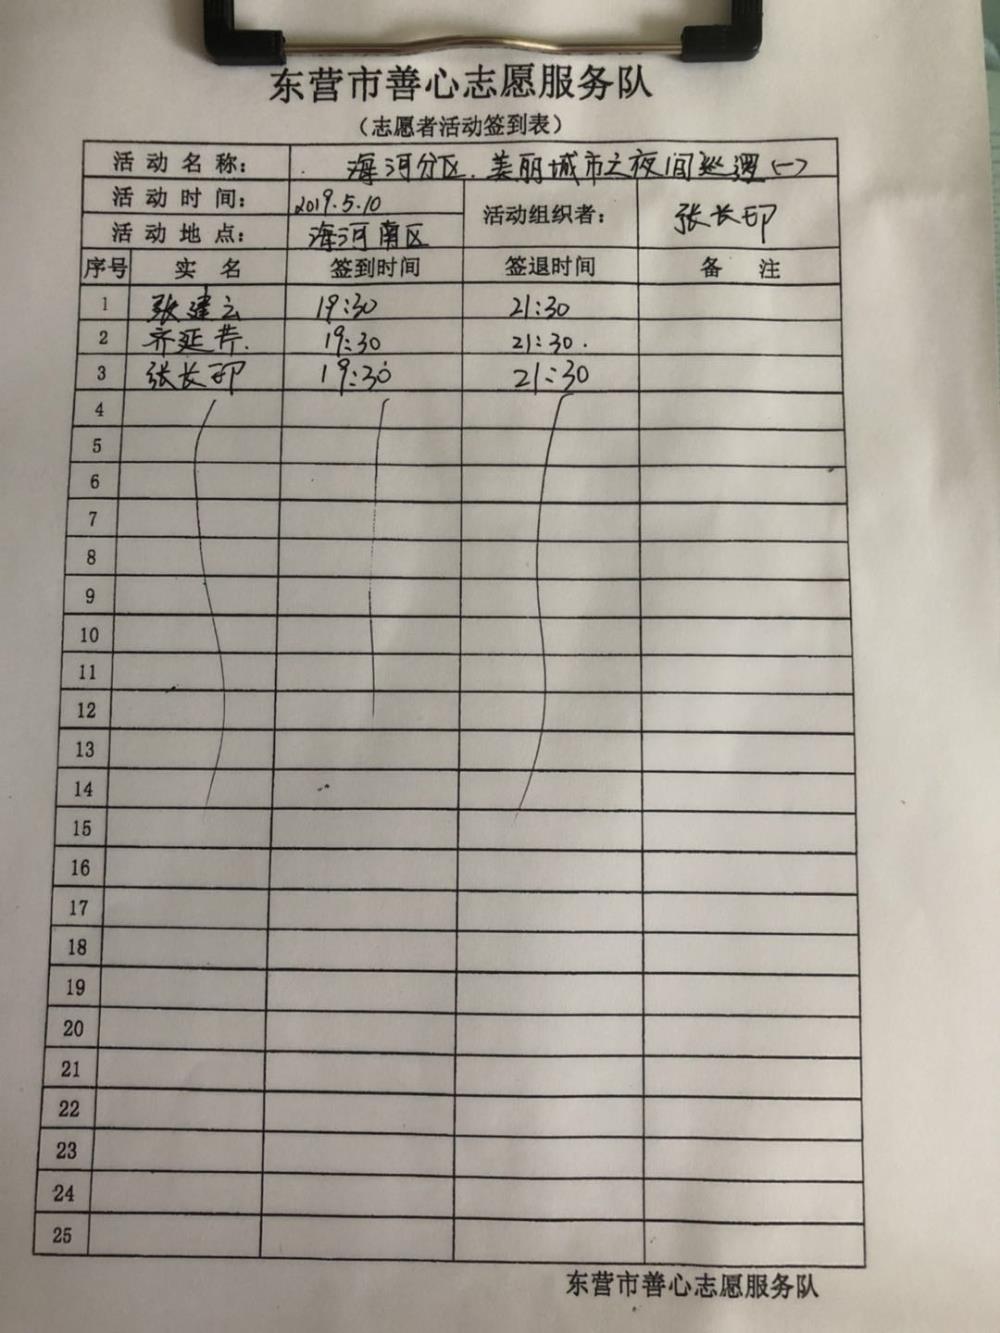 东营市善心志愿服务队
（志愿者活动签到表）
活动名称： 海河分区.美丽城市之夜间巡逻(一)
活动时间： 2019.5.10 活动组织者： 张长印
活动地点： 海河南区
序号 实名 签到时间 签退时间 备注
1 张建云 19:30 21:30
2 齐延芹. 19:30 21:30.
3 张长印 19:30 21:30
4
5
6
7
8
9
10
11
12
13
14
15
16
17
18
19
20
21
22
23
24
25
东营市善心志愿服务队